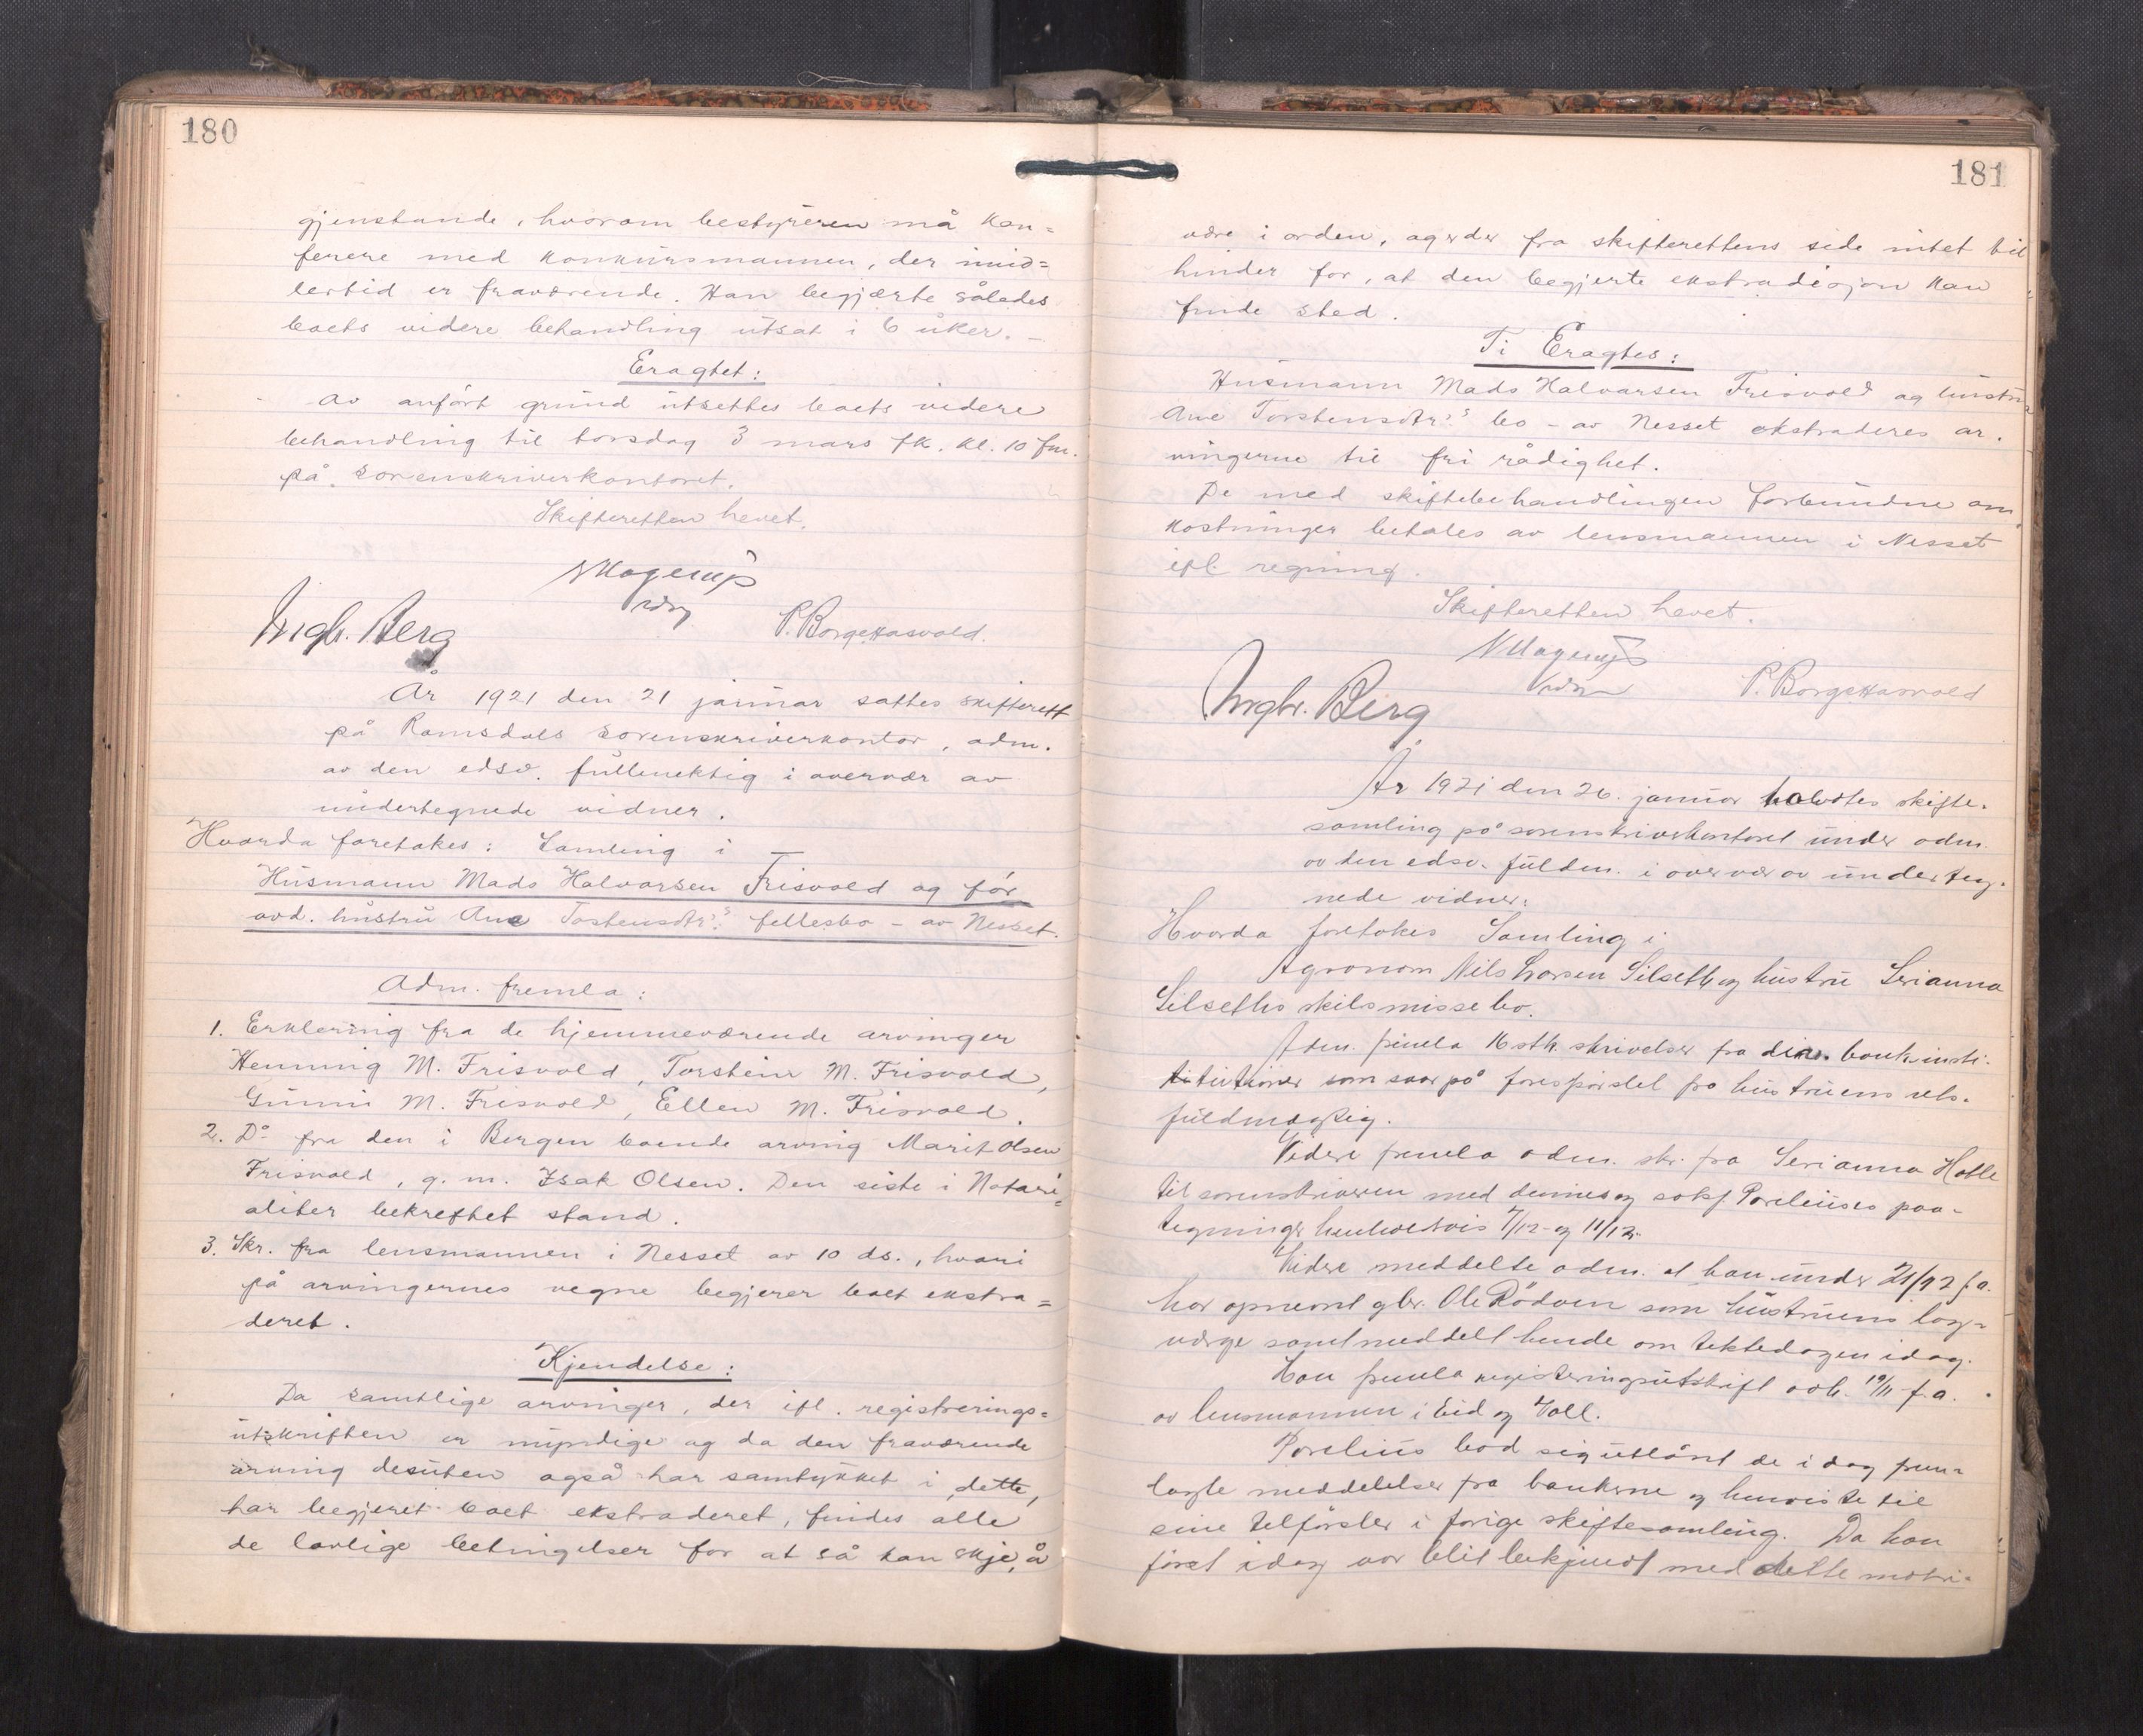 180
gjenstande, hvorom bestyreren må kon=
ferere med konkursmannen, der imid=
lertid er fraværende. Han begjærte således
boets videre behandling utsat i 6 uker. –
Eragtet:
Av anført grund utsettes boets videre
behandling til torsdag 3 mars fk. kl. 10 fm.
på sorenskriverkontoret.
Skifteretten hevet.
Ingbr. Berg
P. Borgekasvold.
År 1921 den 21 januar sattes skifterett
på Romsdals sorenskriverkontor, adm.
av den edsv. fullmektig i overvær av
undertegnede vidner.
Hvorda foretokes: Samling i
Husmann Mads Halvorsen Frisvold og før
avd. hustru Ane Torstensdtr's fellesbo – av Nesset.
Adm. fremla:
1. Erklering fra de hjemmeværende arvinger
Henning M. Frisvold, Torstein M. Frisvold,
Gunni M. Frisvold, Ellen M. Frisvold.
2. Do fra den i Bergen boende arving Marit Olsen
Frisvold, g. m. Isak Olsen. Den siste i Notari=
aliter bekreftet stand.
3. Skr. fra lensmannen i Nesset av 10 ds., hvori
på arvingernes vegne begjerer boet ekstra=
deret.
Kjendelse:
Da samtlige arvinger, der ifl. registrerings=
utskriften er myndige og da den fraværende
arving desuten også har samtykket i dette,
har begjeret boet ekstraderet, findes alle
de lovlige betingelser for at så kan skje, å
181
være i orden, og er der fra skifterettens side intet til
hinder for, at den begjerte ekstradisjon kan
finde sted.
Ti Eragtes:
Husmann Mads Halvorsen Frisvold og hustru
Ane Torstensdtr's bo – av Nesset ekstraderes ar.
vingerne til fri rådighet.
De med skiftebehandlingen forbundne om
kostninger betales av lensmannen i Nesset
ifl. regning.
Skifteretten hevet.
Ingbr. Berg
P. Borgekasvold
År 1921 den 26. januar holdtes skifte-
samling på sorenskriverkontoret under adm.
av den edsv. fuldm. i overvær av underteg-
nede vidner.
Hvorda foretokes Samling i
Agronom Nils Larsen Silseth og hustru Serianna
Silseths skilsmissebo.
Adm. fremla 16 stk. skrivelser fra div. bankinsti-
titutioner som svar på forespørsel fra hustruens
fuldmægtig.
Videre fremla adm. skr. fra Serianna Hatle
til sorenskriveren med dennes og sakf. Porelius's paa-
tegninger henholdsvis 7/12 og 11/12.
Videre meddelte adm. at han under 21/12 f.a.
har opnevnt gbr. Ole Rödven som hustruens lag-
verge samt meddelt hende om tektedagen idag.
Han fremla registeringsutskrift avh. 19/11 f.a.
av lensmannen i Eid og Voll.
Porelius bad sig utlånt de i dag frem-
lagte meddelelser fra bankerne og henviste til
sine tilførsler i forige skiftesamling. Da han
først idag var blit bekjendt med dette motri-